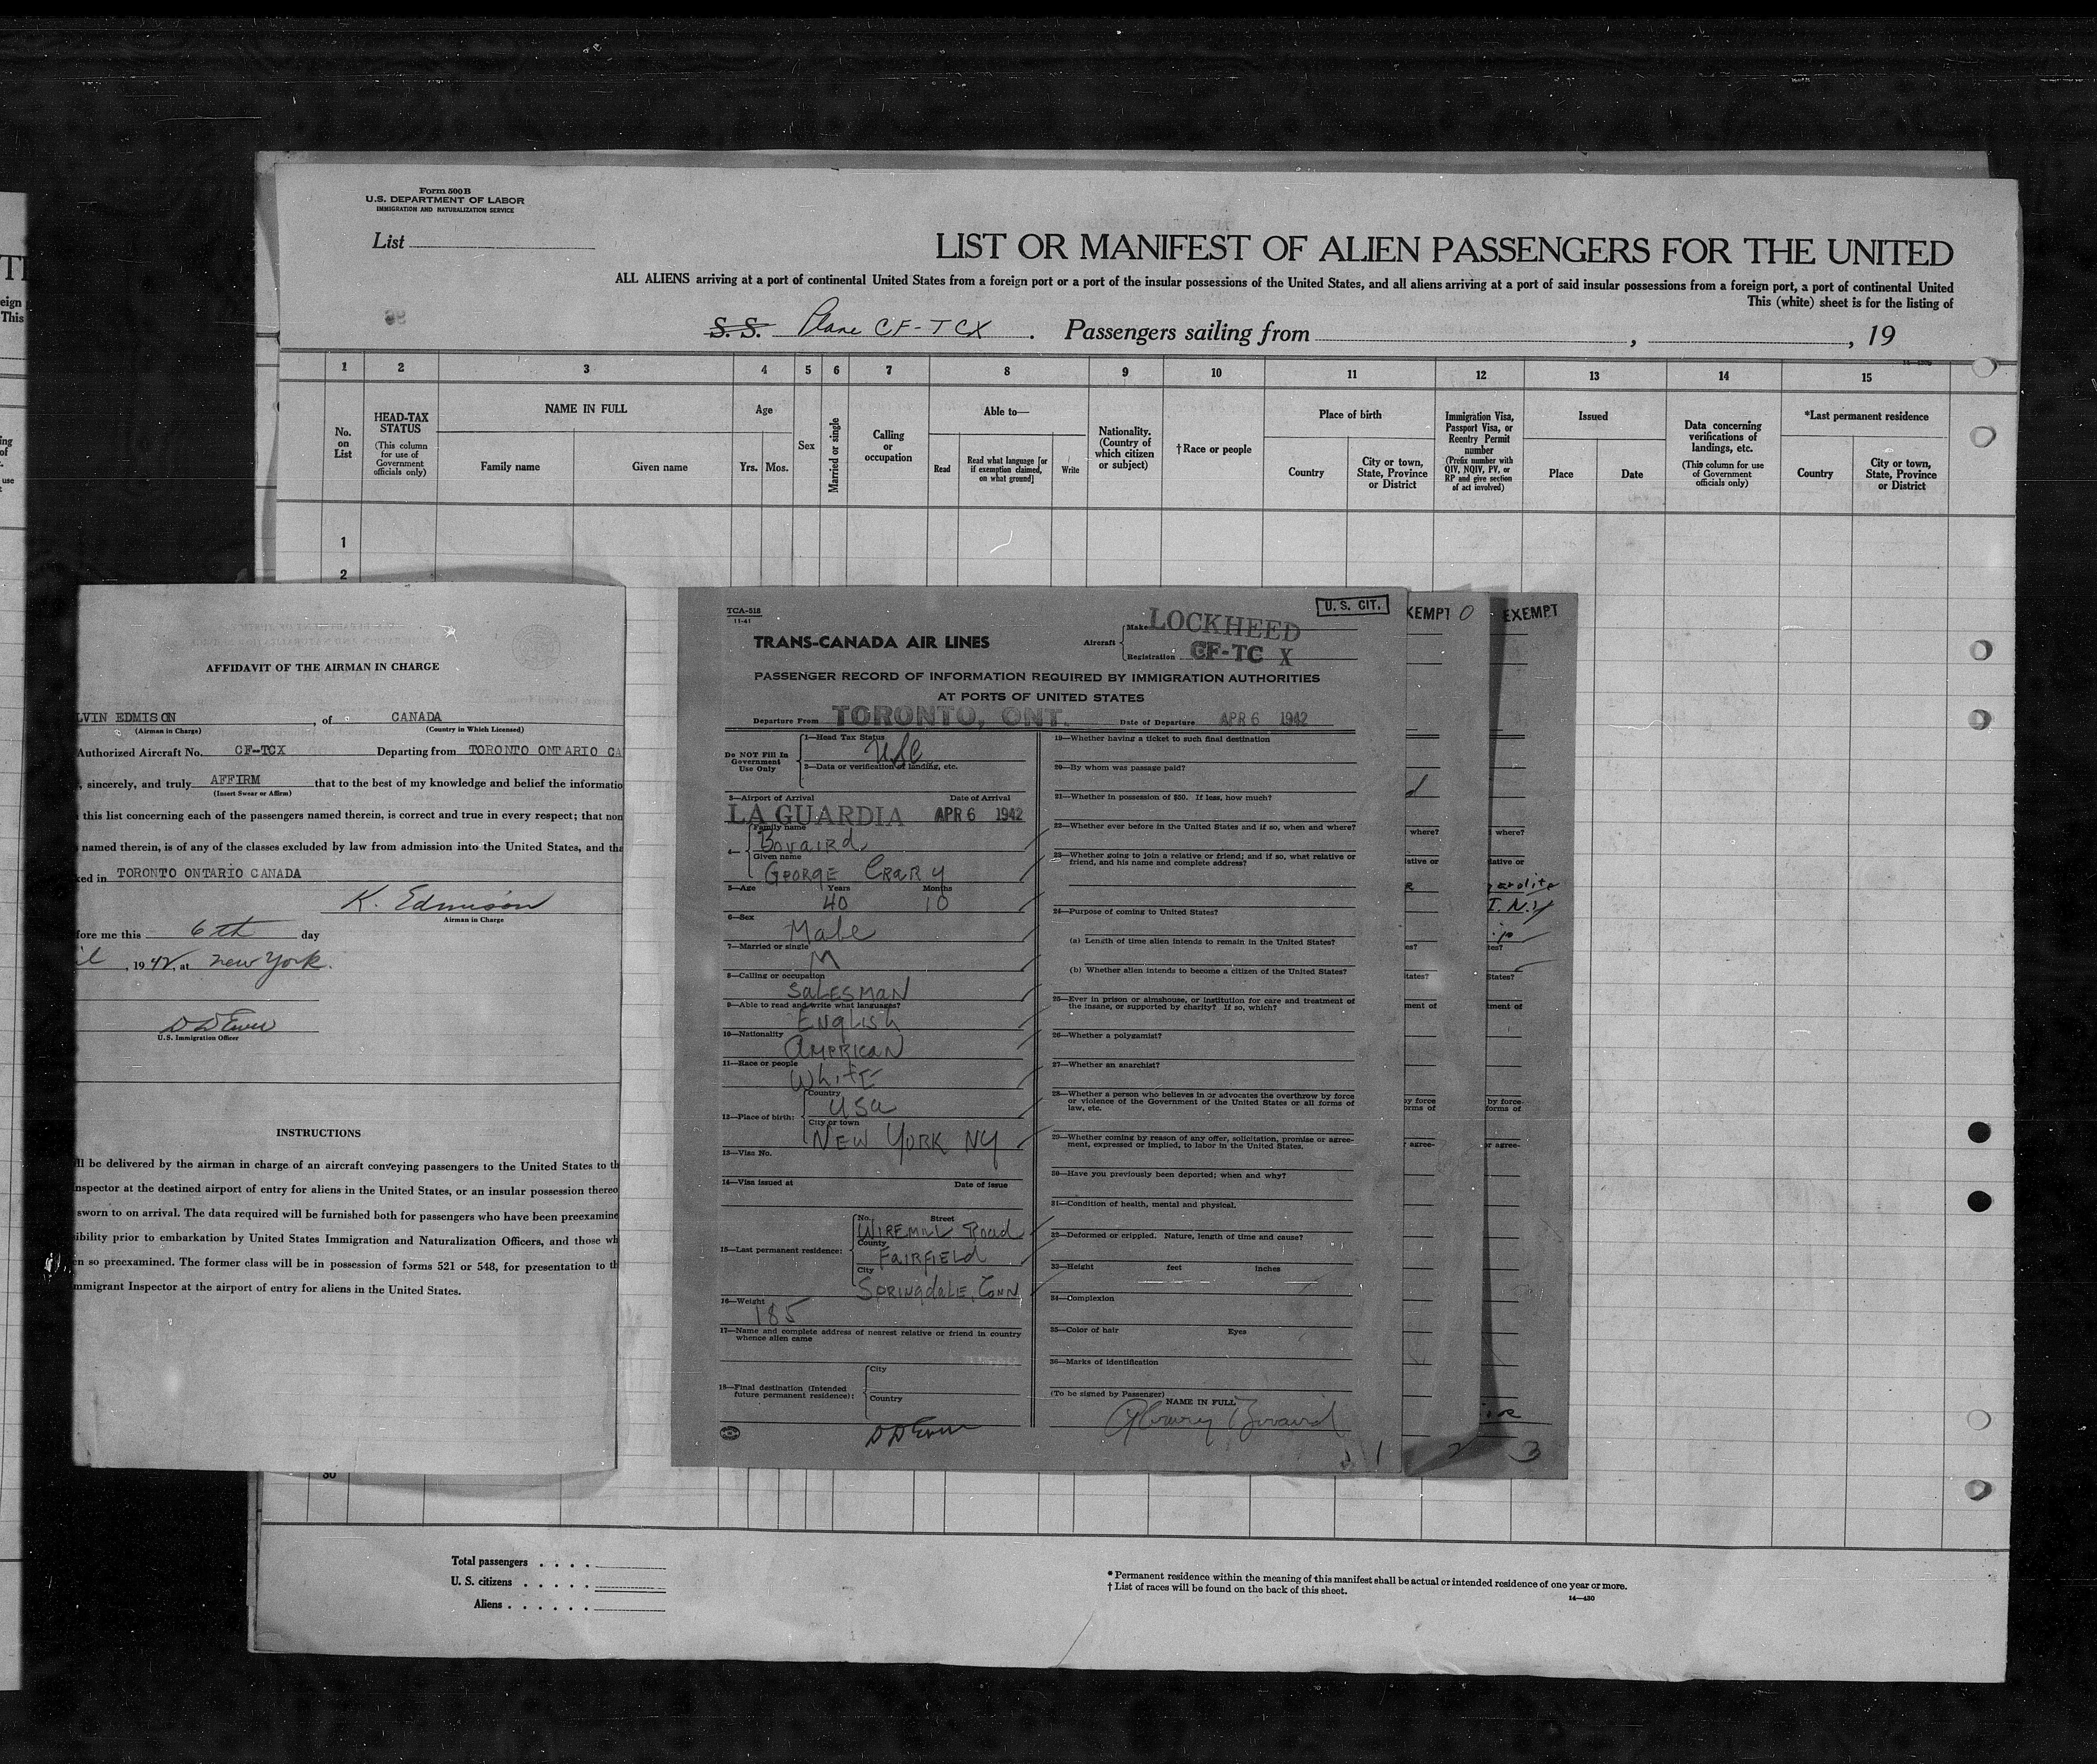 Form 500 B
U.S. DEPARTMENT OF LABOR
IMMIGRATION AND NATURALIZATION SERVICE
List
LIST OR MANIFEST OF ALIEN PASSENGERS FOR THE UNITED
ALL ALIENS arriving at a port of continental United States from a foreign port or a port of the insular possessions of the United States, and all aliens arriving at a port of said insular possessions from a foreign port, a port of continental United
This (white) sheet is for the listing of
S. S. Plane CF-TCX. Passengers sailing from , , 19
1 2 3 4 5 6 7 8 9 10 11 12 13 14 15
No. on List
HEAD-TAX STATUS
(This column for use of Government officials only)
NAME IN FULL
Family name Given name
Age
Yrs. Mos.
Sex
Married or single
Calling or occupation
Able to—
Read
Read what language [or if exemption claimed, on what ground]
Write
Nationality. (Country of which citizen or subject)
†Race or people
Place of birth
Country
City or town, State, Province or District
Immigration Visa, Passport Visa, or Reentry Permit number
(Prefix number with QIV, NQIV, PV, or RP and give section of act involved)
Issued
Place Date
Data concerning verifications of landings, etc.
(This column for use of Government officials only)
*Last permanent residence
Country
City or town, State, Province or District
1
2
AFFIDAVIT OF THE AIRMAN IN CHARGE
LVIN EDMISON, of CANADA
(Airman in Charge) (Country in Which Licensed)
Authorized Aircraft No. CF-TCX Departing from TORONTO ONTARIO CA
, sincerely, and truly AFFIRM that to the best of my knowledge and belief the informatio
(Insert Swear or Affirm)
this list concerning each of the passengers named therein, is correct and true in every respect; that non
named therein, is of any of the classes excluded by law from admission into the United States, and tha
ked in TORONTO ONTARIO CANADA
K. Edmison
Airman in Charge
fore me this 6th day
il, 1942, at new York.
U.S. Immigration Officer
INSTRUCTIONS
ll be delivered by the airman in charge of an aircraft conveying passengers to the United States to th
nspector at the destined airport of entry for aliens in the United States, or an insular possession thereo
sworn to on arrival. The data required will be furnished both for passengers who have been preexamine
ibility prior to embarkation by United States Immigration and Naturalization Officers, and those wh
en so preexamined. The former class will be in possession of forms 521 or 548, for presentation to th
mmigrant Inspector at the airport of entry for aliens in the United States.
TCA-518
11-41
U. S. CIT.
TRANS-CANADA AIR LINES
Aircraft
Make LOCKHEED
Registration CF-TC X
PASSENGER RECORD OF INFORMATION REQUIRED BY IMMIGRATION AUTHORITIES
AT PORTS OF UNITED STATES
Departure From TORONTO, ONT. Date of Departure APR 6 1942
Do NOT Fill In Government Use Only
1—Head Tax Status USC
2—Data or verification of landing, etc.
3—Airport of Arrival Date of Arrival
LA GUARDIA APR 6 1942
4—
Family name
Bovaird
Given name
George Crary
5—Age Years Months
40 10
6—Sex
Male
7—Married or single
M
8—Calling or occupation
Salesman
9—Able to read and write what languages?
English
10—Nationality
American
11—Race or people
White
12—Place of birth:
Country
USA
City or town
New York NY
13—Visa No.
14—Visa issued at Date of issue
15—Last permanent residence:
No. Street
Wiremill Road
County
Fairfield
City
Springdale, Conn
16—Weight
185
17—Name and complete address of nearest relative or friend in country
whence alien came
18—Final destination (Intended
future permanent residence):
City
Country
19—Whether having a ticket to such final destination
20—By whom was passage paid?
21—Whether in possession of $50. If less, how much?
22—Whether ever before in the United States and if so, when and where?
23—Whether going to join a relative or friend; and if so, what relative or
friend, and his name and complete address?
24—Purpose of coming to United States?
(a) Length of time alien intends to remain in the United States?
(b) Whether alien intends to become a citizen of the United States?
25—Ever in prison or almshouse, or institution for care and treatment of
the insane, or supported by charity? If so, which?
26—Whether a polygamist?
27—Whether an anarchist?
28—Whether a person who believes in or advocates the overthrow by force
or violence of the Government of the United States or all forms of
law, etc.
29—Whether coming by reason of any offer, solicitation, promise or agree-
ment, expressed or implied, to labor in the United States.
30—Have you previously been deported; when and why?
31—Condition of health, mental and physical.
32—Deformed or crippled. Nature, length of time and cause?
33—Height feet inches
34—Complexion
35—Color of hair Eyes
36—Marks of identification
(To be signed by Passenger)
NAME IN FULL
1
XEMPT 0
where?
lative or
es?
tates?
ment of
by force
orms of
agree-
2
EXEMPT
where?
lative or
I. N.Y
tes?
States?
tment of
by force
forms of
or agree-
3
30
Total passengers
U. S. citizens
Aliens
* Permanent residence within the meaning of this manifest shall be actual or intended residence of one year or more.
† List of races will be found on the back of this sheet.
14—430